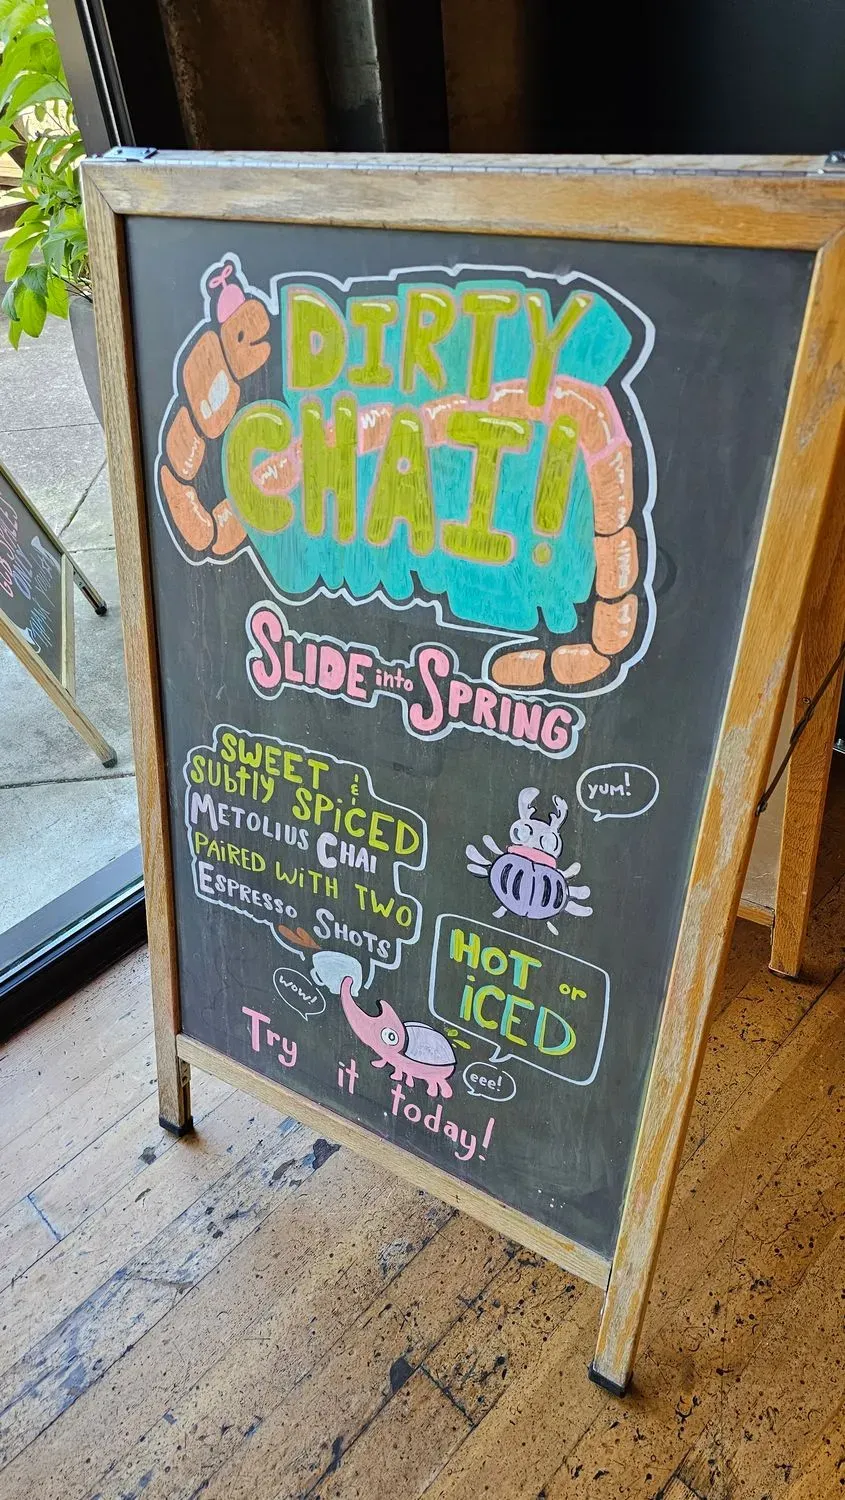 DIRTY
CHAI!
SLIDE into SPRING
SWEET &
SUBTLY SPICED
METOLIUS CHAI
PAIRED WITH TWO
ESPRESSO SHOTS
yum!
HOT or
ICED
wow!
eee!
Try it today!